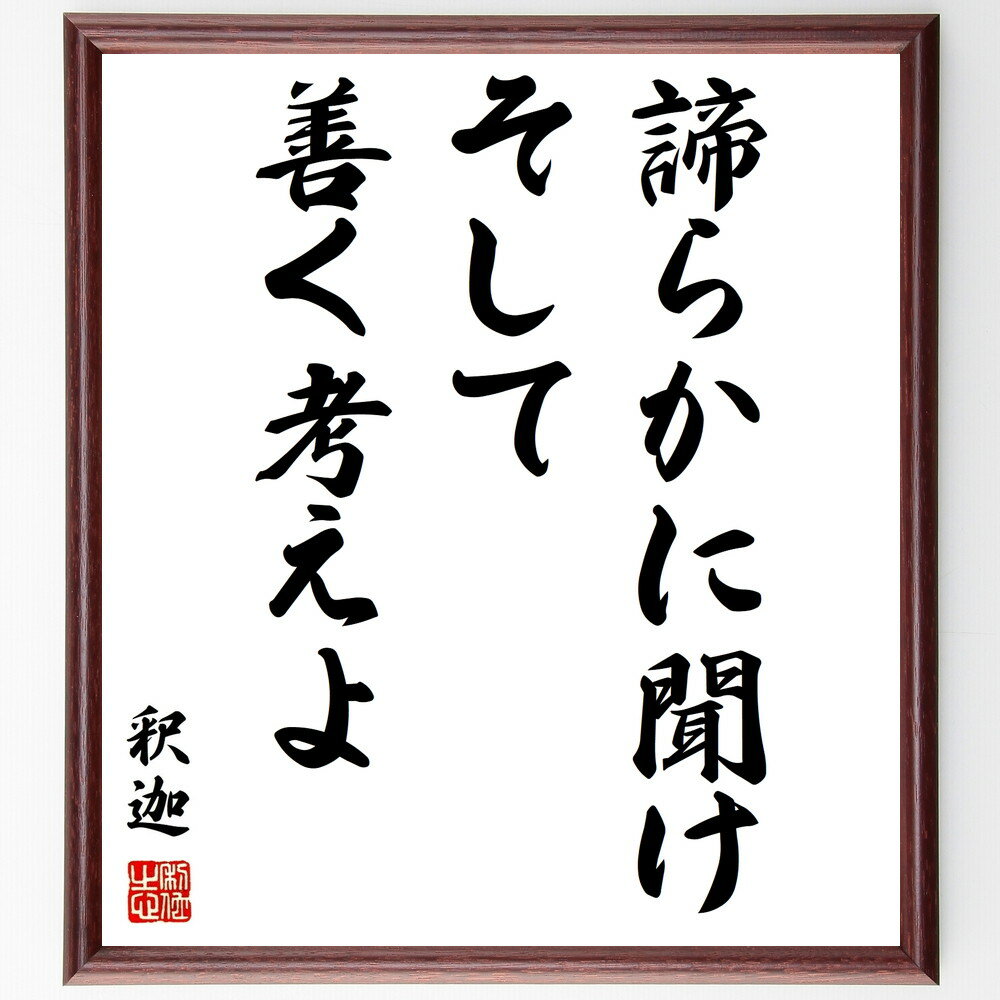 諦らかに聞け
そして
善く考えよ
釈迦